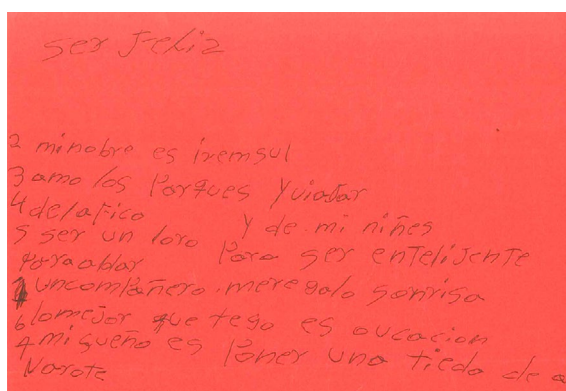 ser feliz
2 minobre es iremsul
3 amo los Parques y viajar
4 delatico y de mi niñes
5 ser un loro Para ser entelijente
Para ablar
1 uncompañero me regalo sonrisa
6 lomejor que tego es oucacion
4 mi sueño es Poner una tieda de a
Narote